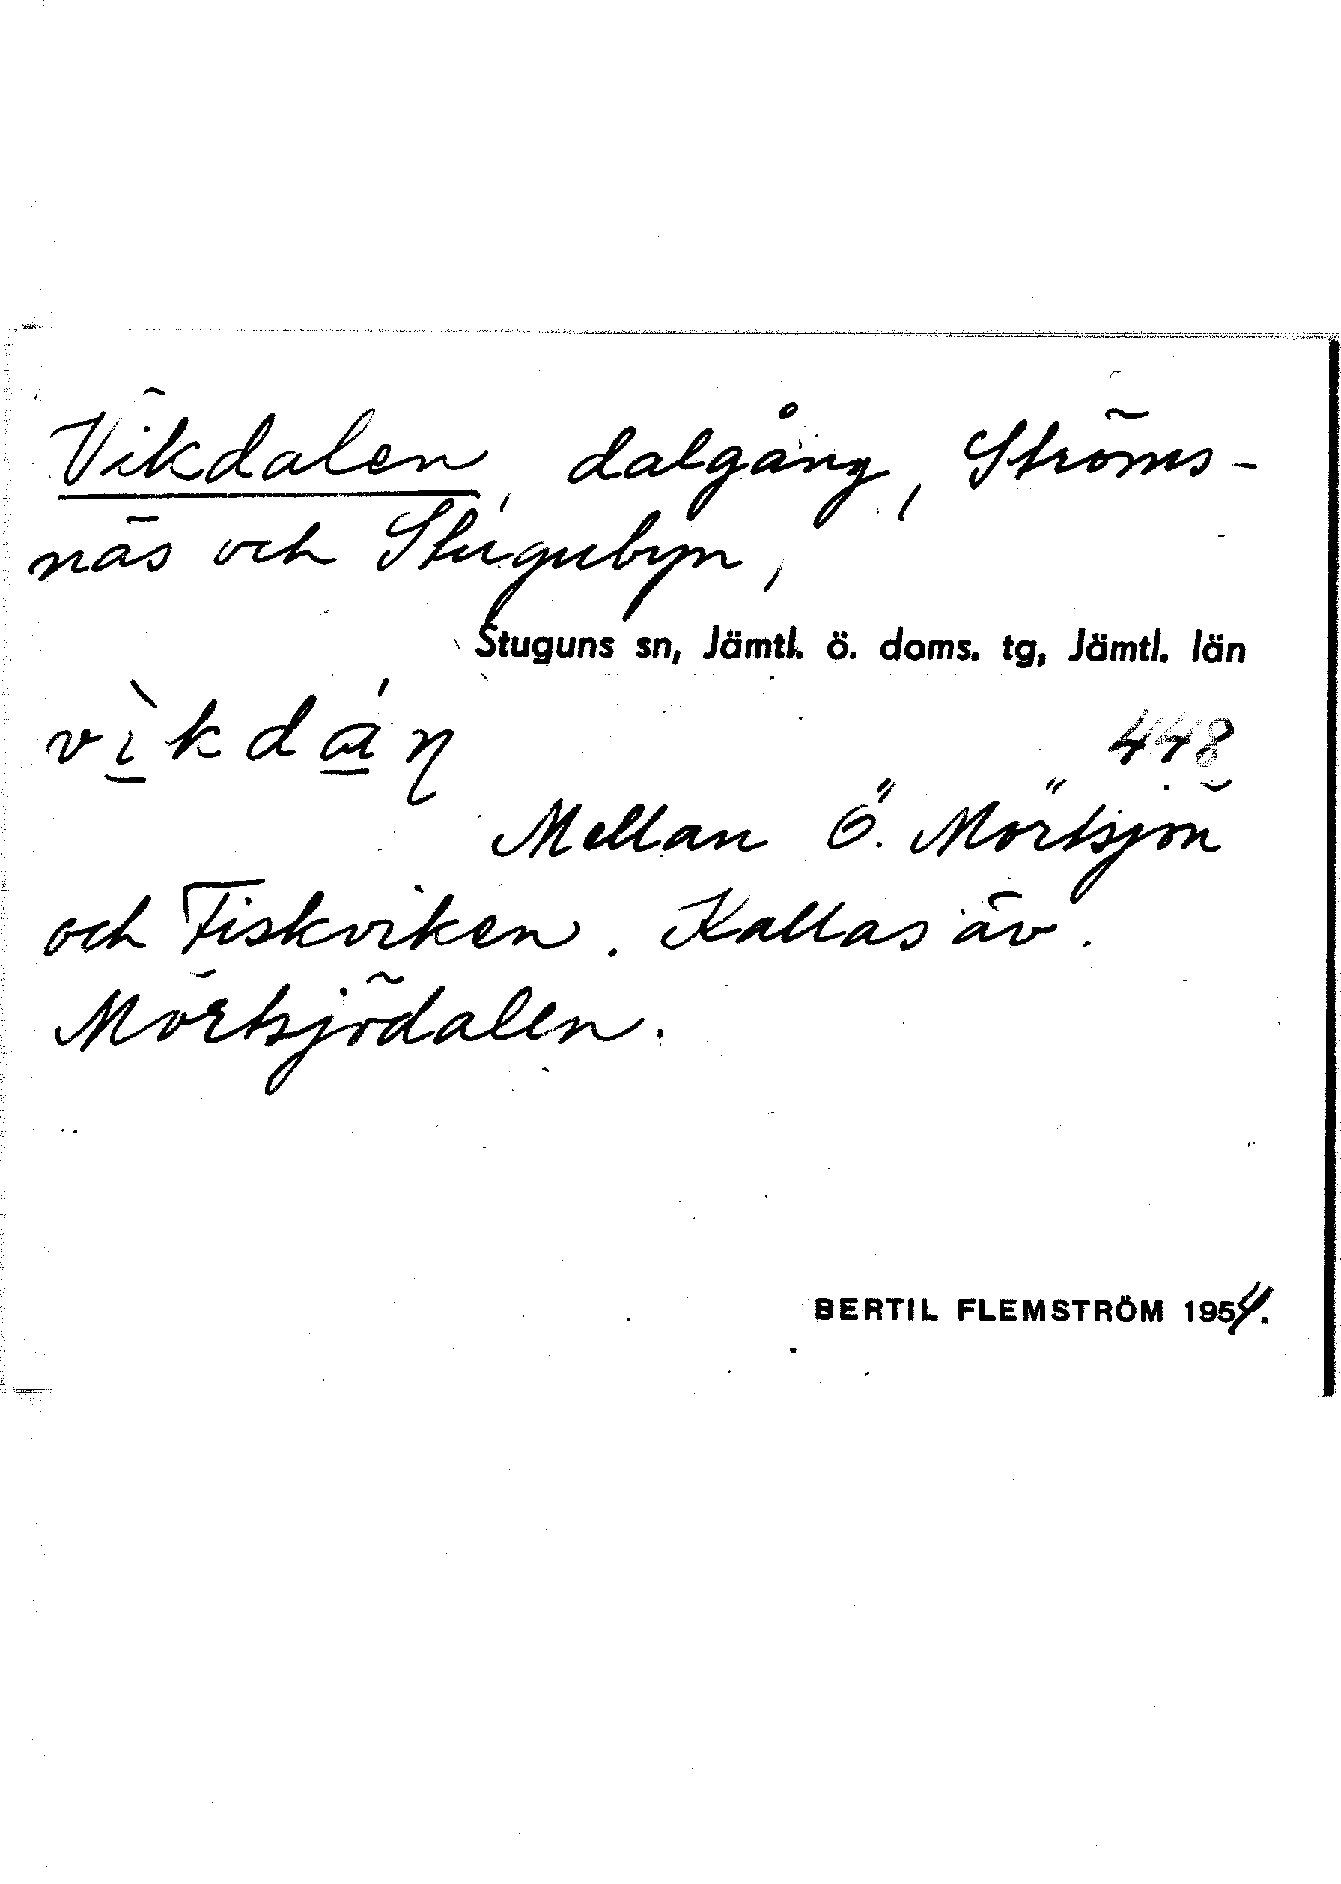 Vikdalen, dalgång, Ströms-
näs och Stugubyn,
Stuguns sn, Jämtl. ö. doms. tg, Jämtl. län
vìkdáŋ
448
Mellan Ö. Mörtsjön
och Fiskviken. Kallas äv.
Mörtsjödalen.
BERTIL FLEMSTRÖM 1954.